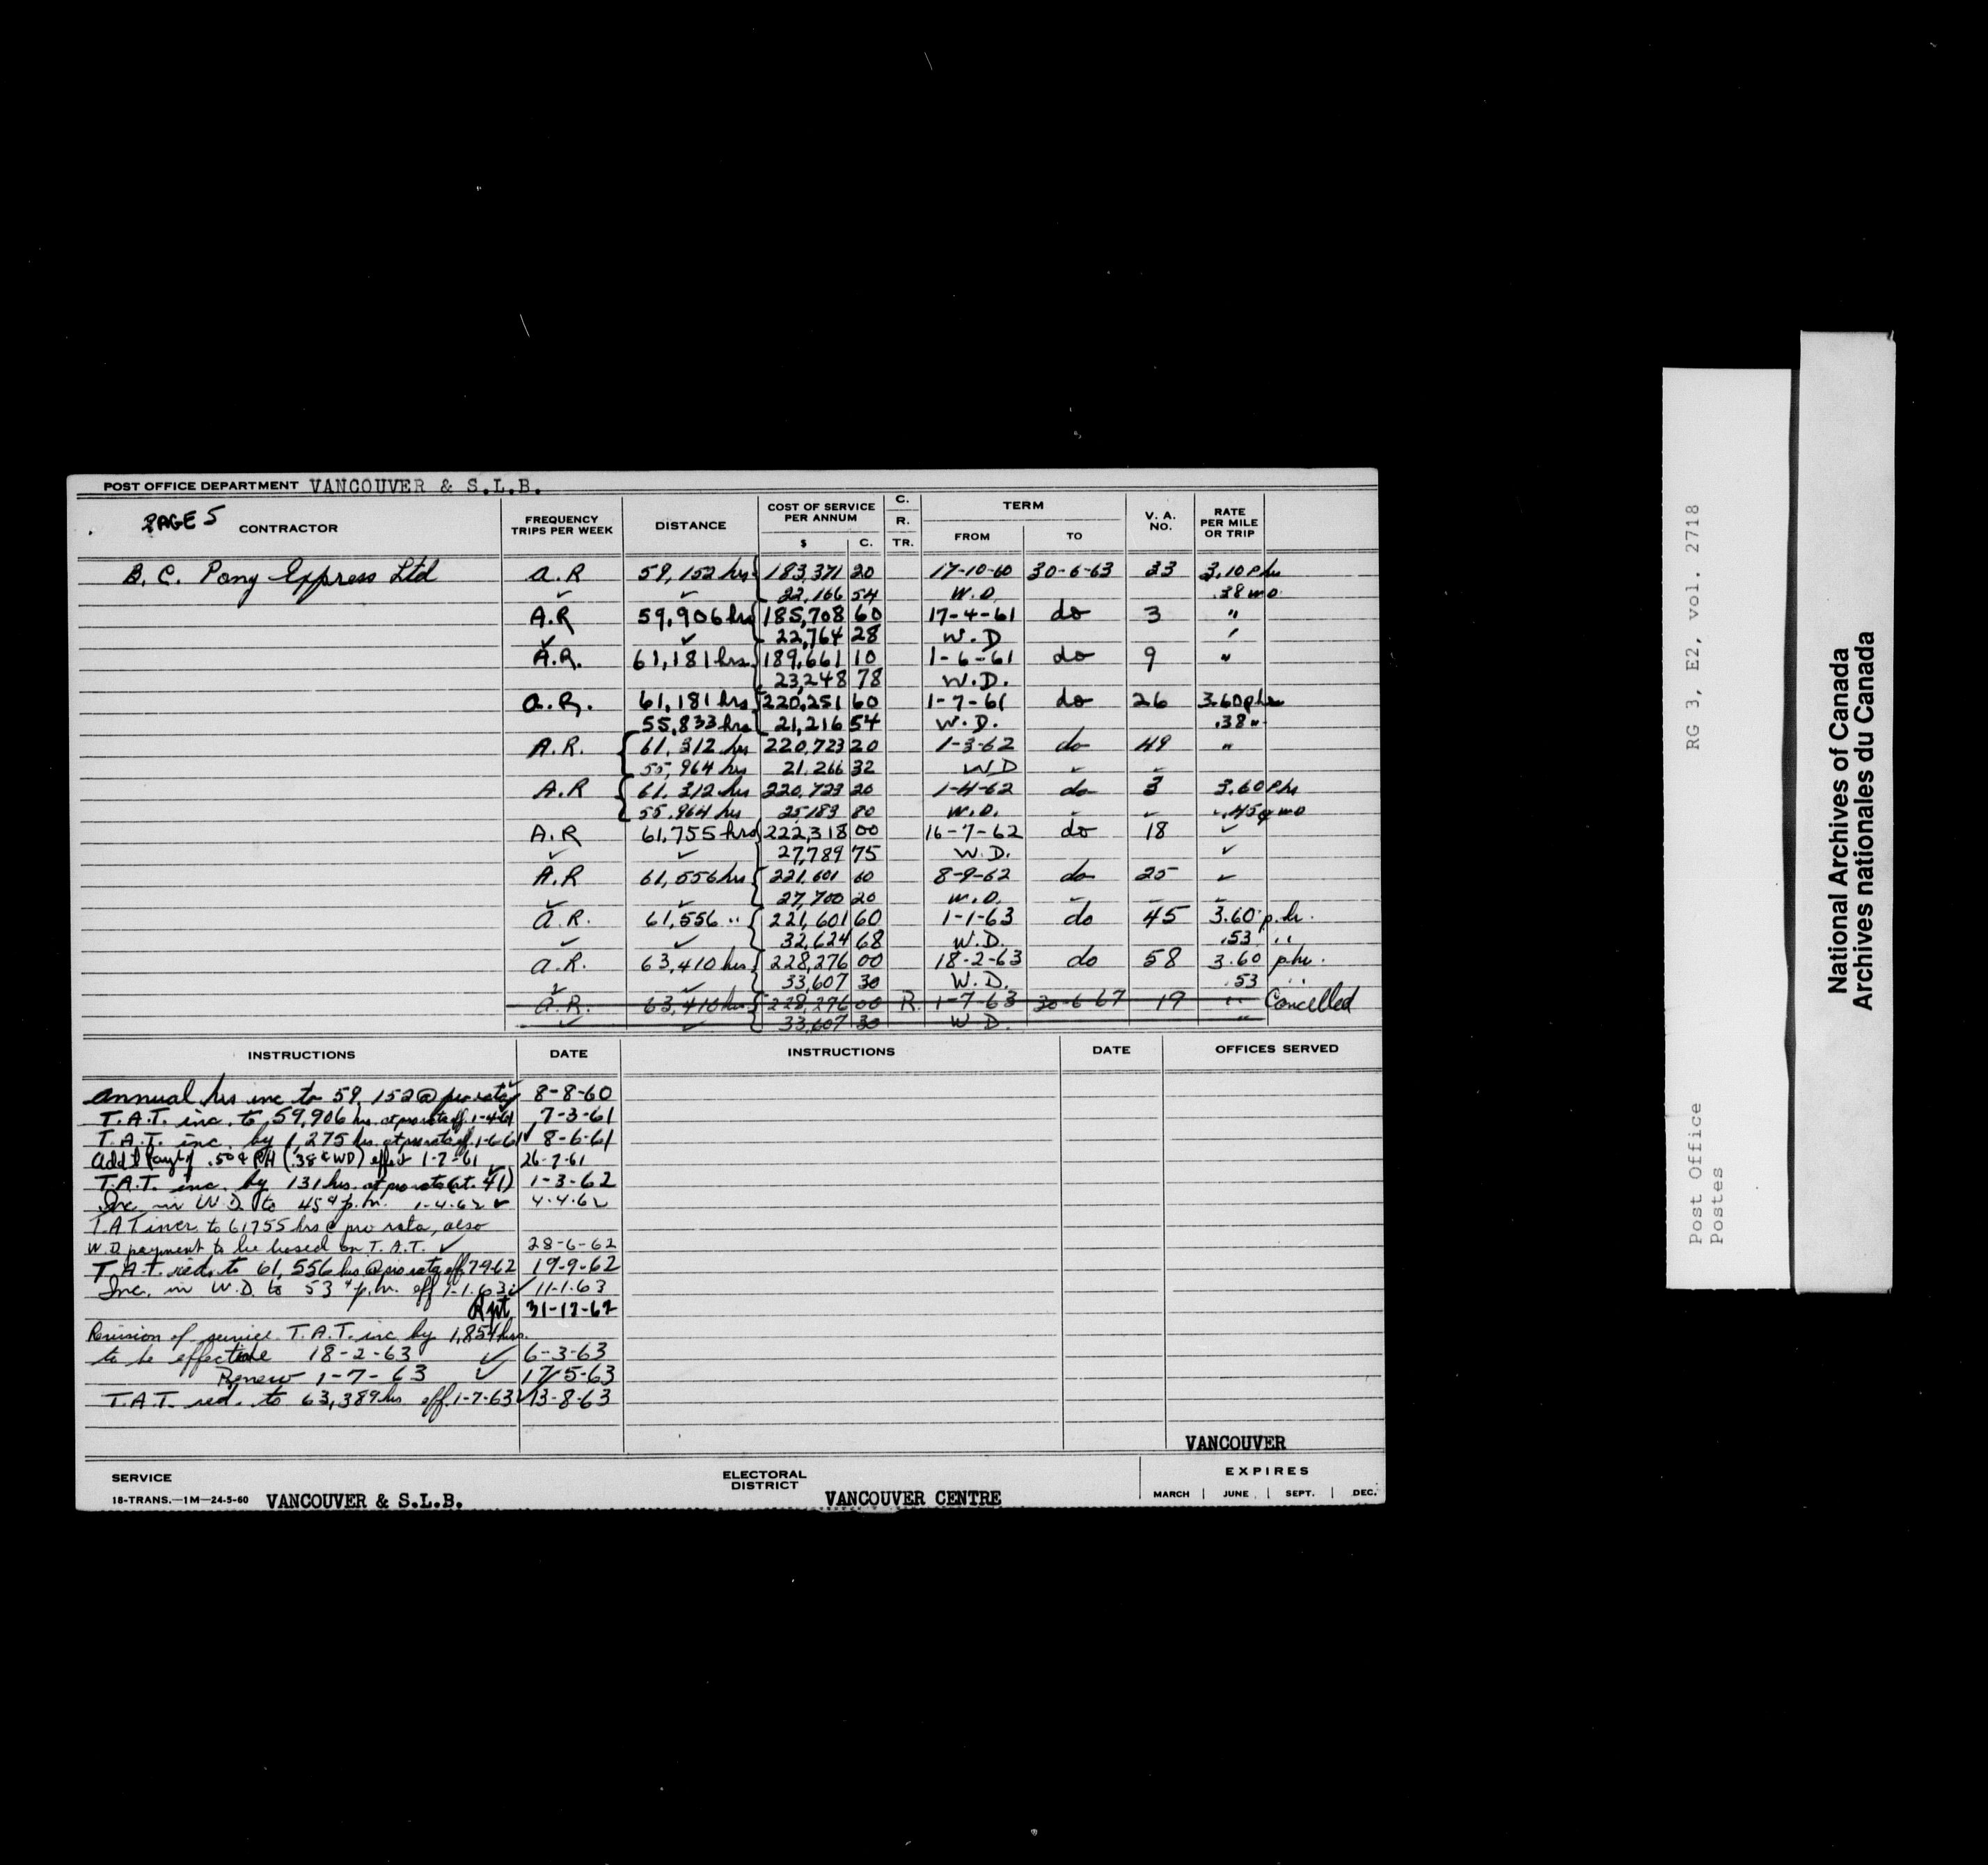 POST OFFICE DEPARTMENT VANCOUVER & S.L.B.
PAGE 5
CONTRACTOR FREQUENCY TRIPS PER WEEK DISTANCE COST OF SERVICE PER ANNUM $ C. C. R. TR. TERM FROM TO V. A. NO. RATE PER MILE OR TRIP
B. C. Pony Express Ltd a.R 59,152 hrs { 183,371 20 17-10-60 30-6-63 33 3.10 phr
✓ ✓ 22,166 54 W.D. .38 wo
A.R 59,906 hrs { 185,708 60 17-4-61 do 3 "
✓ ✓ 22,764 28 W.D "
A.R. 61,181 hrs { 189,661 10 1-6-61 do 9 "
23,248 78 W.D.
a.R. 61,181 hrs { 220,251 60 1-7-61 do 26 3.60 phr
55,833 hrs 21,216 54 W.D. .38 "
A.R. { 61,312 hrs 220,723 20 1-3-62 do 49 "
55,964 hrs 21,266 32 WD ✓ ✓
A.R { 61,312 hrs 220,723 20 1-4-62 do 3 3.60 phr
55,964 hrs 25,183 80 W.D. ✓ ✓ .45¢ wo
A.R 61,755 hrs { 222,318 00 16-7-62 do 18 ✓
✓ ✓ 27,789 75 W.D. ✓
A.R 61,556 hrs { 221,601 60 8-9-62 do 25 ✓
✓ ✓ 27,700 20 W.D. ✓ ✓ ✓
a.R. 61,556 " { 221,601 60 1-1-63 do 45 3.60 p.h.
✓ ✓ 32,624 68 W.D. .53 "
a.R. 63,410 hrs { 228,276 00 18-2-63 do 58 3.60 phr.
✓ ✓ 33,607 30 W.D. .53 "
a.R. 63,410 hrs { 228,276 00 R. 1-7-63 30-6-67 19 " Cancelled
✓ ✓ 33,607 30 W D. "
INSTRUCTIONS DATE INSTRUCTIONS DATE OFFICES SERVED
Annual hrs inc to 59,152 @ pro rata ✓ 8-8-60
T.A.T. inc. to 59,906 hrs. at pro rata eff. 1-4-61 7-3-61
T.A.T. inc. by 1,275 hrs. at pro rata eff. 1-6-61 ✓ 8-6-61
Add'l Payt of .50¢ PH (.38¢ WD) effect 1-7-61 ✓ 26-7-61
T.A.T. inc. by 131 hrs. at pro rata (et. 41) 1-3-62
Inc. in W.D. to 45¢ p.h. 1-4-62 ✓ 4.4.62
T.A.T incr to 61755 hrs @ pro rata, also
W.D payment to be based on T.A.T. ✓ 28-6-62
T.A.T. red. to 61,556 hrs @ pro rata eff 7-9-62 19-9-62
Inc. in W.D. to 53¢ p.m. eff 1-1.63 ✓ 11-1.63
Rpt 31-12-62
Revision of service T.A.T. inc by 1,854 hrs.
to be effective 18-2-63 ✓ 6-3-63
Renew 1-7-63 ✓ 17/5-63
T.A.T. red. to 63,389 hrs eff. 1-7-63 ✓ 13-8-63
VANCOUVER
SERVICE ELECTORAL DISTRICT EXPIRES
18-TRANS.—1M—24-5-60 VANCOUVER & S.L.B. VANCOUVER CENTRE MARCH | JUNE | SEPT. | DEC.
Post Office RG 3, E2, vol. 2718
Postes
National Archives of Canada
Archives nationales du Canada